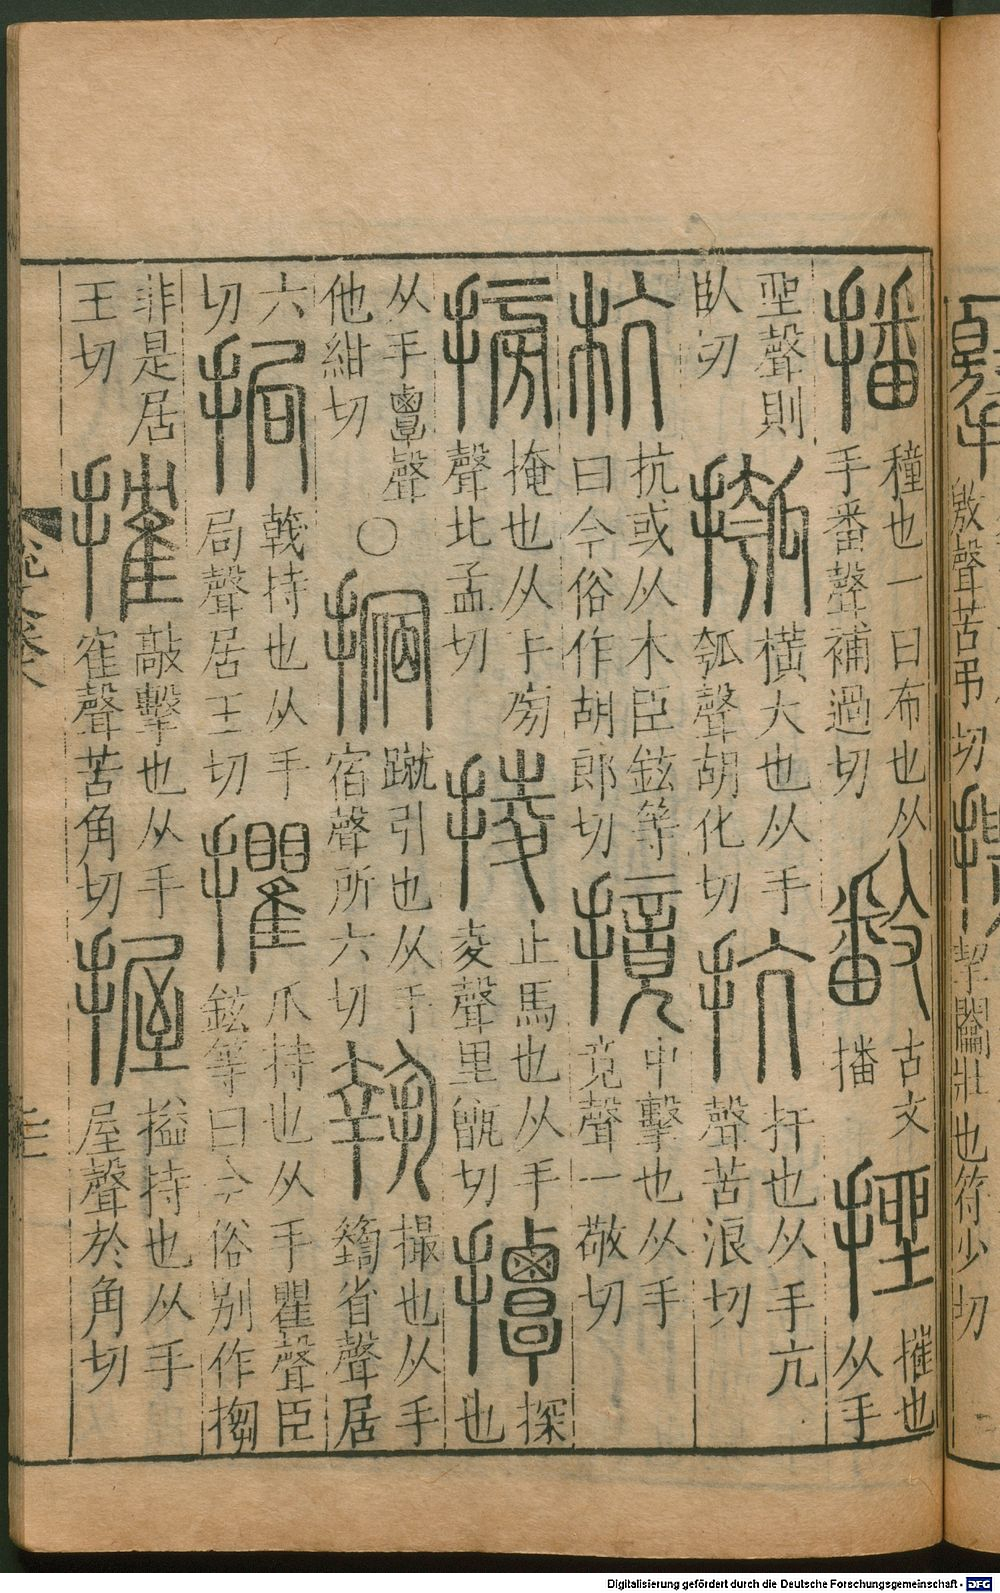 敫聲苦弔切
摽
挈闟壯也符少切
播
穜也一曰布也从
手番聲補過切
𢿥
古文
播
挫
摧也
从手
坐聲則
臥切
橫大也从手
瓠聲胡化切
抗
扞也从手亢
聲苦浪切
杭
抗或从木臣鉉等
曰今俗作胡郎切
摬
中擊也从手
竟聲一敬切
搒
掩也从手㫄
聲北孟切
掕
止馬也从手
夌聲里甑切
撢
探
也
从手覃聲
他紺切
○
摍
蹴引也从手
宿聲所六切
撮也从手
省聲居
六
切
挶
戟持也从手
局聲居玉切
㩴
爪持也从手瞿聲臣
鉉等曰今俗別作掬
非是居
王切
搉
敲擊也从手
隺聲苦角切
握
搤持也从手
屋聲於角切
Digitalisierung gefördert durch die Deutsche Forschungsgemeinschaft - DFG